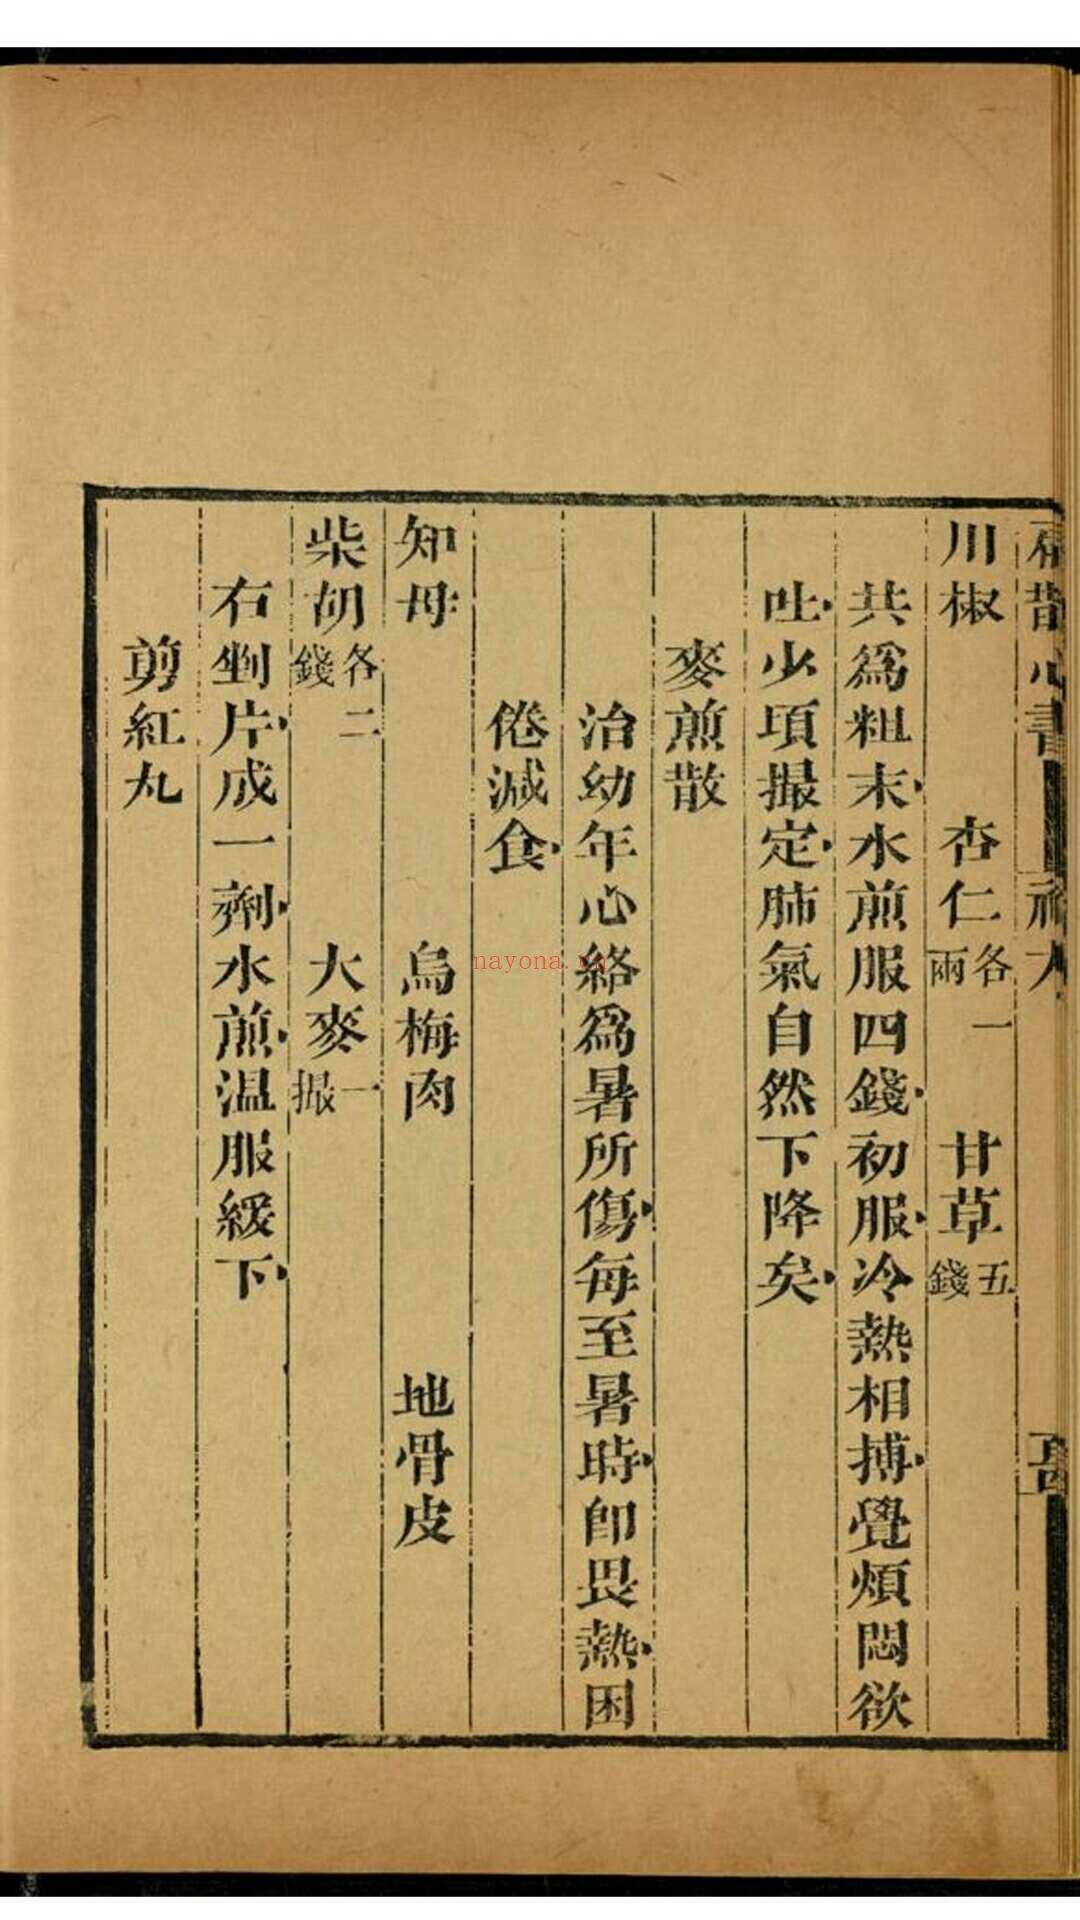 川椒　杏仁各一兩　甘草五錢
共爲粗末水煎服四錢初服冷熱相搏覺煩悶欲
吐少項撮定肺氣自然下降矣
麥煎散
治幼年心絡爲暑所傷每至暑時卽畏熱困
倦減食
知母　烏梅肉　地骨皮
柴胡各二錢　大麥一撮
右剉片成一劑水煎温服緩下
剪紅丸